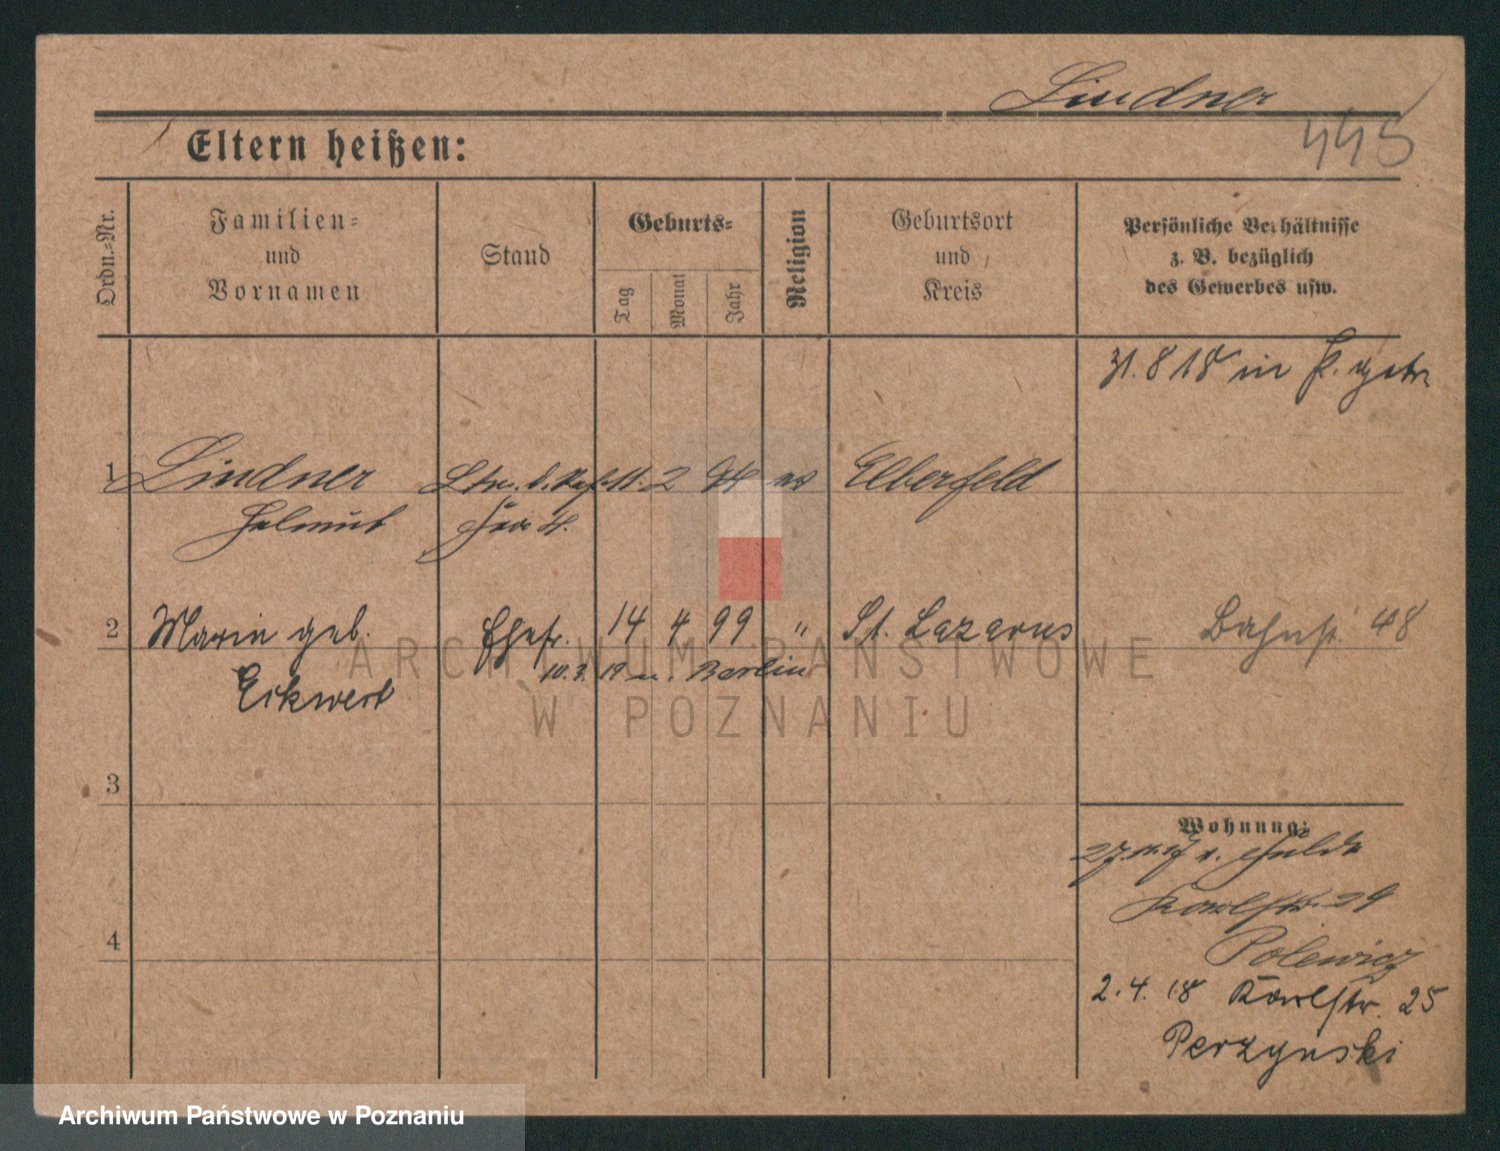 Lindner
445
Eltern heißen:
Ordn.-Nr.
Familien-
und
Vornamen
Stand
Geburts-
Tag
Monat
Jahr
Religion
Geburtsort
und
Kreis
Persönliche Verhältnisse
z. B. bezüglich
des Gewerbes usw.
31. 8 18 in P. getr.
1 Lindner Ltn. d. Res. 11. 2 94 ev Elberfeld
Helmut
2 Marie geb. Ehefr. 14 4 99 " St. Lazarus Bahnst. 48
10. 3. 19 n. Berlin
Eckwert
3
4
Wohnung:
27. 11. 17 v. Fulda
Karlstr. 29
Polewicz
2. 4. 18 Karlstr. 25
Perzynski
ARCHIWUM PAŃSTWOWE
W POZNANIU
Archiwum Państwowe w Poznaniu